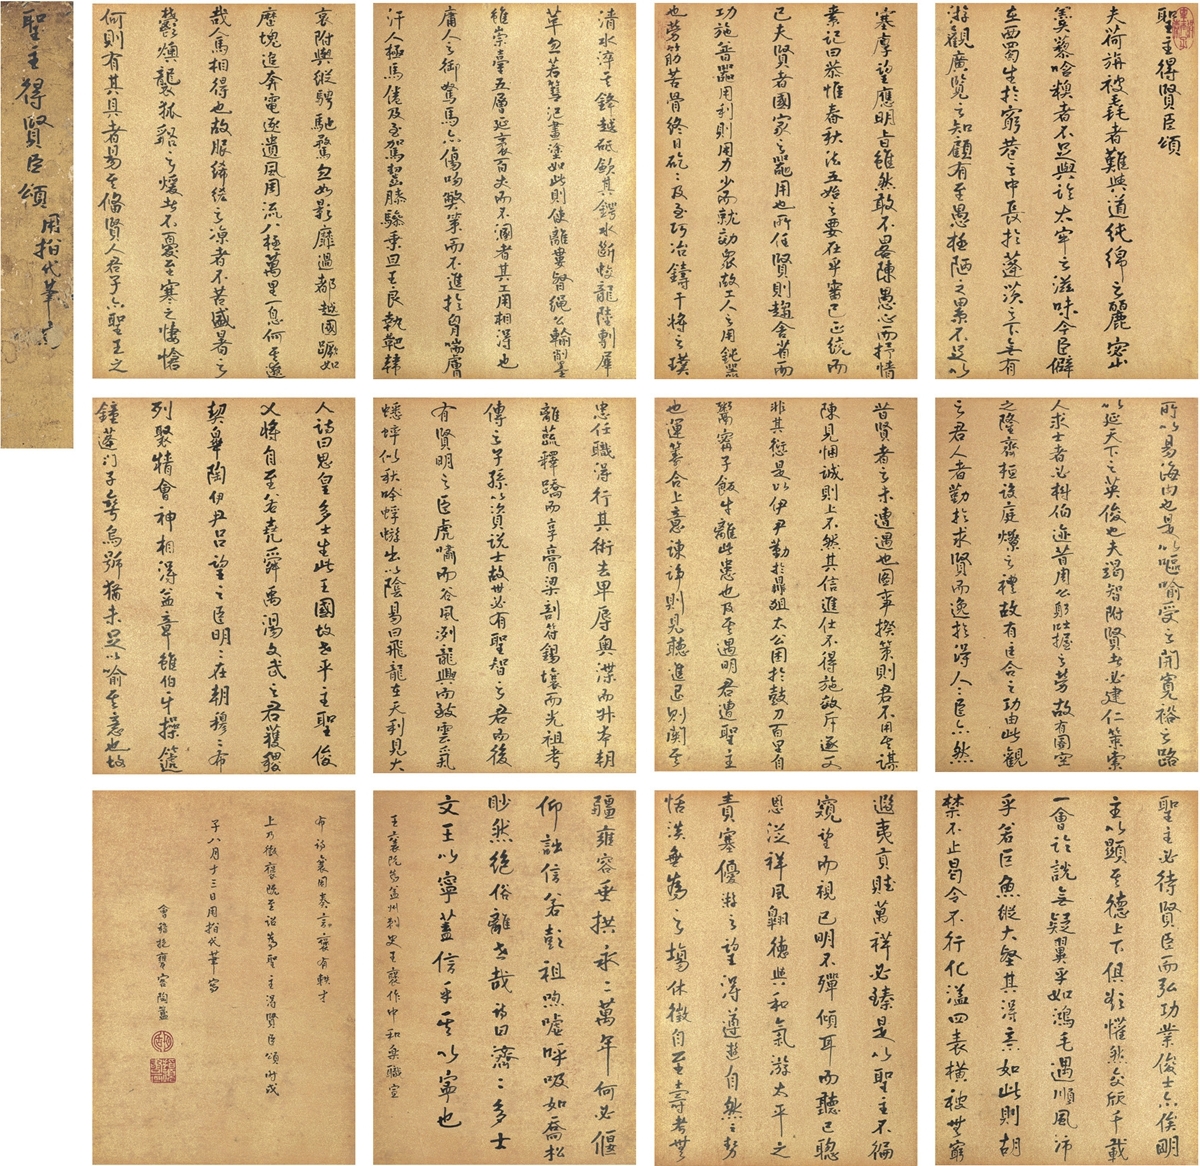 聖主得賢臣頌 用指代筆寫
聖主得賢臣頌
夫荷旃被毳者難與道純綿之麗密
羹藜唅糗者不足與論太牢之滋味今臣僻
在西蜀生於窮巷之中長於蓬茨之下無有
游觀廣覽之知顧有至愚極陋之累不足以
塞厚望應明旨雖然敢不畧陳愚心而抒情
素記曰恭惟春秋法五始之要在乎審己正統而
已夫賢者國家之器用也所任賢則趨舍省而
功施普器用利則用力少而就効衆故工人之用鈍器
也勞筋苦骨終日矻矻及至巧冶鑄干將之璞
清水淬其鋒越砥歛其鍔水斷蛟龍陸剸犀
革忽若篲汜畫塗如此則使離婁督繩公輸削墨
雖崇臺五層延袤百丈而不溷者其工用相得也
庸人之御駑馬亦傷吻獘策而不進於胷喘膚
汗人極馬倦及至駕齧膝驂乘旦王良執靶韓
哀附輿縱騁馳騖忽如影靡過都越國蹶如
歷塊追奔電逐遺風周流八極萬里一息何其遼
哉人馬相得也故服絺綌之凉者不苦盛暑之
鬱燠襲狐貉之煖者不憂至寒之悽愴
何則有其具者易其備賢人君子亦聖王之
所以易海內也是以嘔喻受之開寬裕之路
以延天下之英俊也夫竭智附賢者必建仁策索
人求士者必樹伯迹昔周公躬吐握之勞故有圄空
之隆齊桓設庭燎之禮故有匡合之功由此觀
之君人者勤於求賢而逸於得人人臣亦然
昔賢者之未遭遇也圖事揆策則君不用其謀
陳見悃誠則上不然其信進仕不得施效斥逐又
非其愆是以伊尹勤於鼎俎太公困於鼓刀百里自
鬻甯子飯牛離此患也及其遇明君遭聖主
也運籌合上意諫諍則見聽進退則関其
忠任職得行其術去卑辱奥渫而升本朝
離蔬釋蹻而享膏梁剖符錫壤而光祖考
傳之子孫以資説士故世必有聖智之君而後
有賢明之臣虎嘯而谷風冽龍興而致雲氣
蟋蟀俟秋吟蜉蝣出以陰易曰飛龍在天利見大
人詩曰思皇多士生此王國故世平主聖俊
乂將自至若堯舜禹湯文武之君獲稷
契皐陶伊尹呂望之臣明明在朝穆穆布
列聚精會神相得益章雖伯牙操遞
鐘蓬門子彎烏號猶未足以喻其意也故
聖主必待賢臣而弘功業俊士亦俟明
主以顯其德上下俱欲懽然交欣千載
一會論説無疑翼乎如鴻毛遇順風沛
乎若巨魚縱大壑其得意如此則胡
禁不止曷令不行化溢四表橫被無窮
遐夷貢獻萬祥必臻是以聖主不徧
窺望而視已明不殫傾耳而聽已聰
恩從祥風翱德與和氣游太平之
責塞優游之望得遵遊自然之勢
恬淡無為之場休徵自至壽考無
疆雍容垂拱永永萬年何必偃
仰詘信若彭祖呴噓呼吸如喬松
眇然絕俗離世哉詩曰濟濟多士
文王以寧蓋信乎其以寧也
王襄既為益州刺史王褒作中和樂職宣
布詩襄因奏言褒有軼才
上乃徵褒既至詔為聖主得賢臣頌時戊
子八月十三日用指代筆寫
會稽抱甕陶